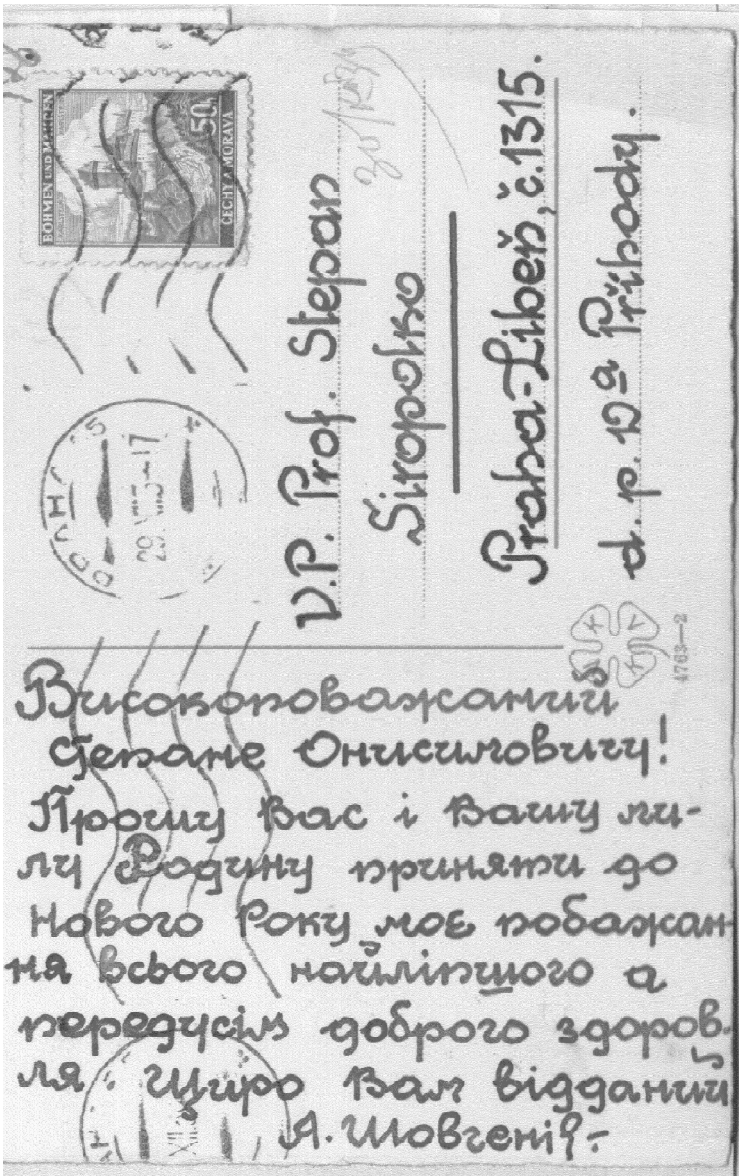 BÖHMEN UND MÄHREN
50
ČECHY A MORAVA
29 XII -17
V.P. Prof. Stepan
Siropolko
Praha-Libeň, č. 1315.
d. p. Dª Příhody.
4763-2
Високоповажаний
Степане Онисимовичу!
Прошу Вас і Вашу ми-
лу Родину приняти до
Нового Року моє побажан-
ня всього найліпшого а
передусім доброго здоров-
ля. Щиро Вам відданий
Я. Шовгенів.-
XII